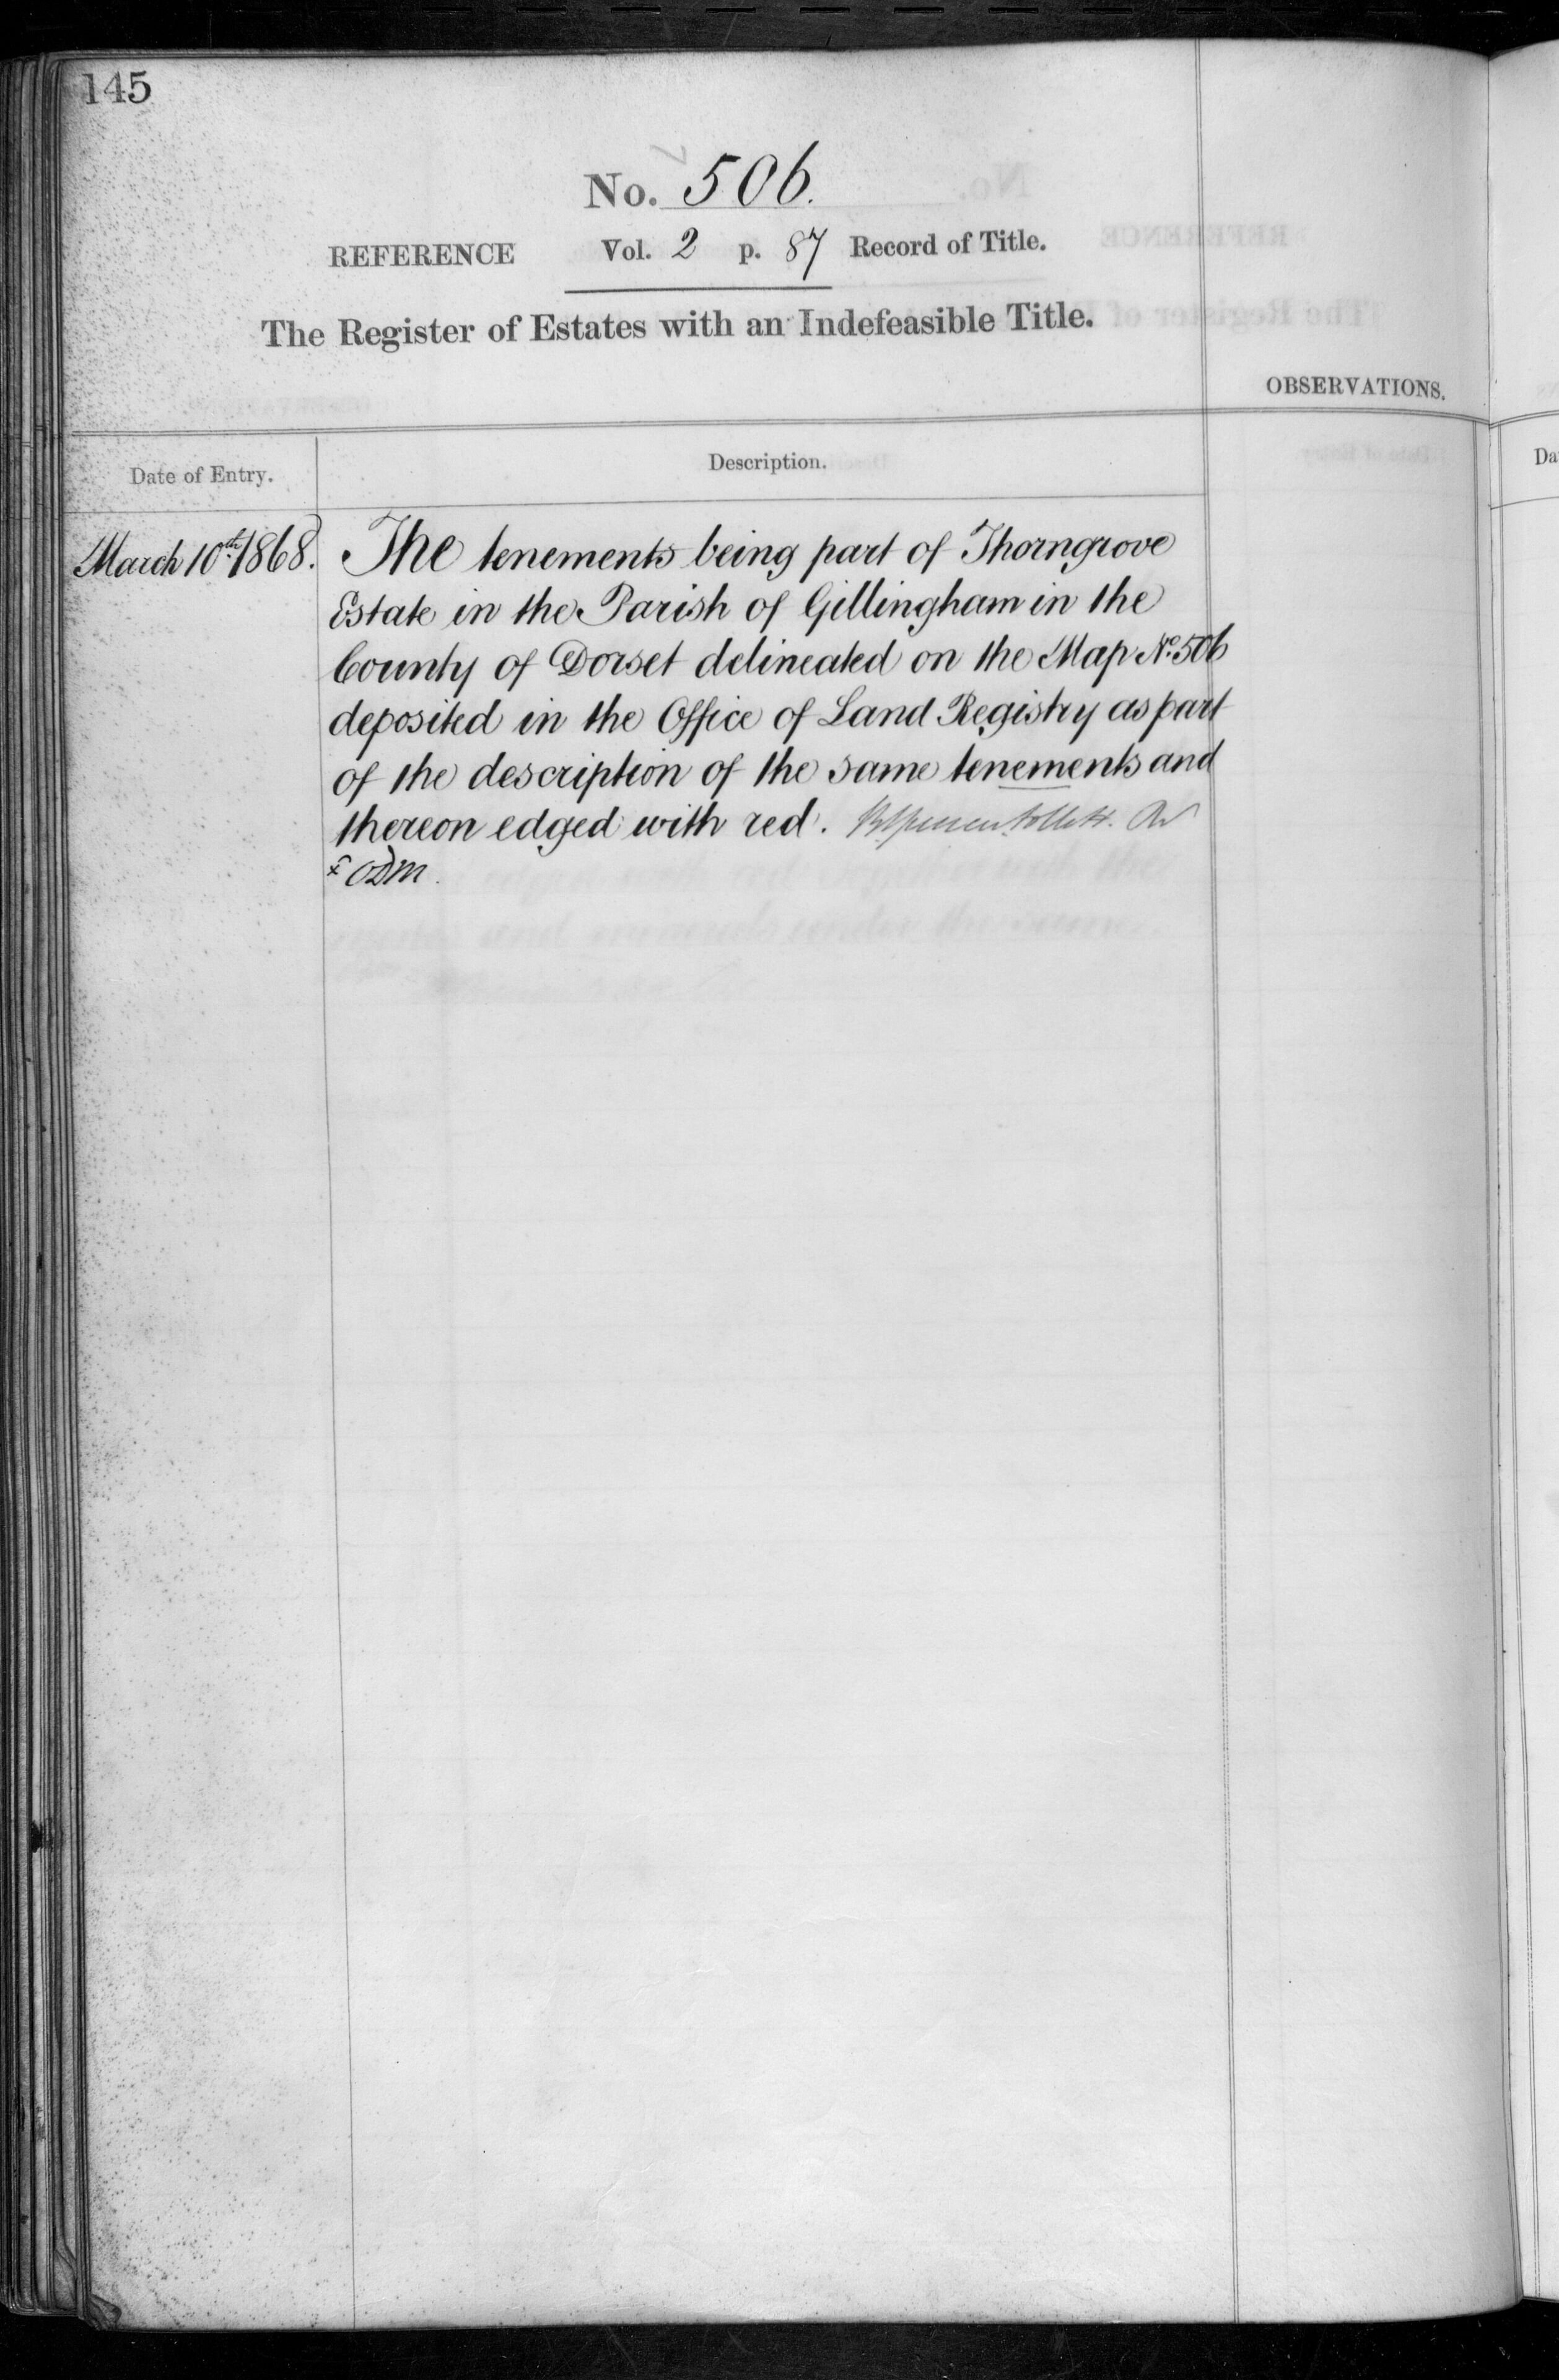 145
No. 506.
REFERENCE Vol. 2 p. 87 Record of Title.
The Register of Estates with an Indefeasible Title.
OBSERVATIONS.
Date of Entry.
Description.
March 10th 1868.
The tenements being part of Thorngrove
Estate in the Parish of Gillingham in the
County of Dorset delineated on the Map No. 506
deposited in the Office of Land Registry as part
of the description of the same tenements and
thereon edged with red.